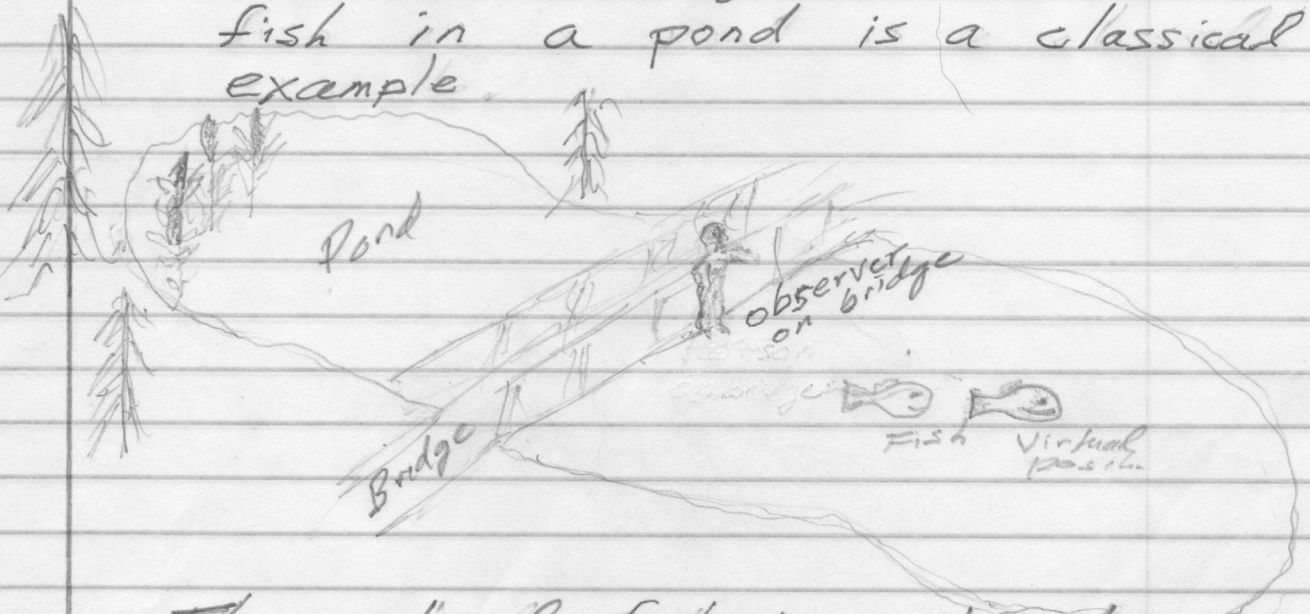 fish in a pond is a classical
example.
Pond
observer
on bridge
Bridge
Fish
Virtual